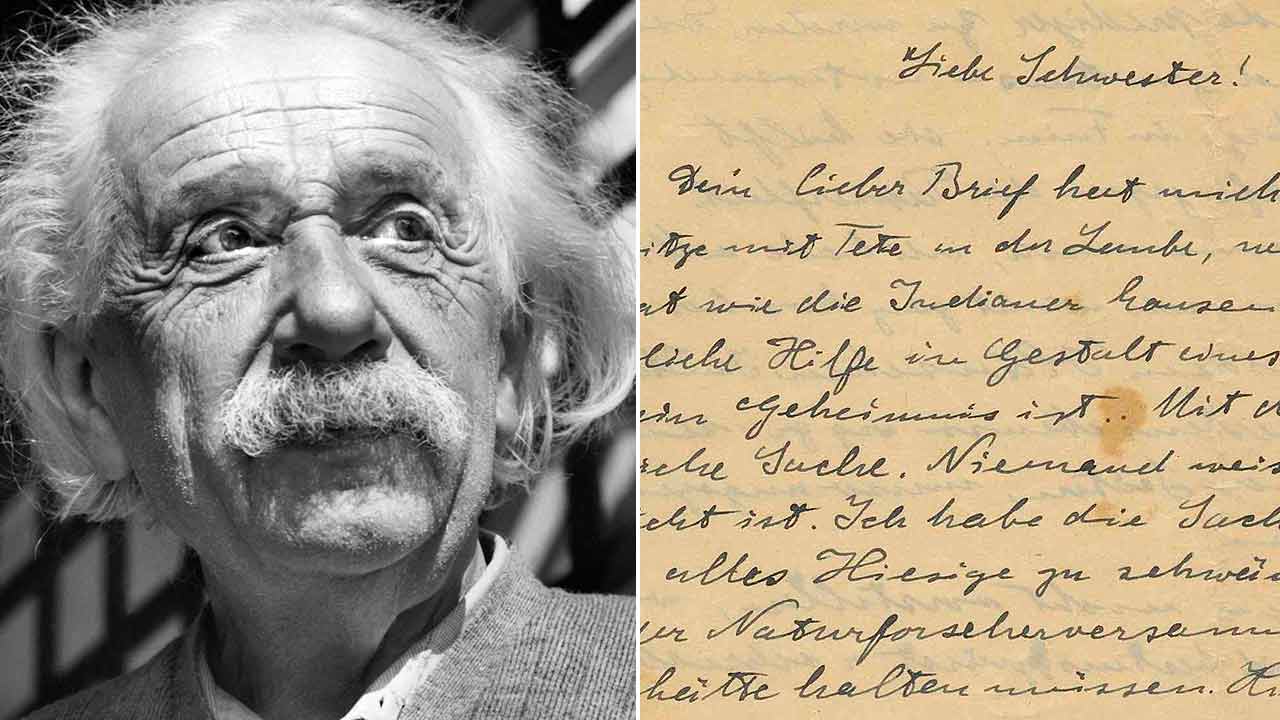 Liebe Schwester!
Dein lieber Brief hat mich
itze mit Tete in der Laube, ne
at wie die Indianer hausen
liche Hilfe in Gestalt eines
ein Geheimnis ist. Mit
sche Sache. Niemand weis
icht ist. Ich habe die Sach
alles Hiesige zu schwei
er Naturforscherversamm
hätte halten müssen.